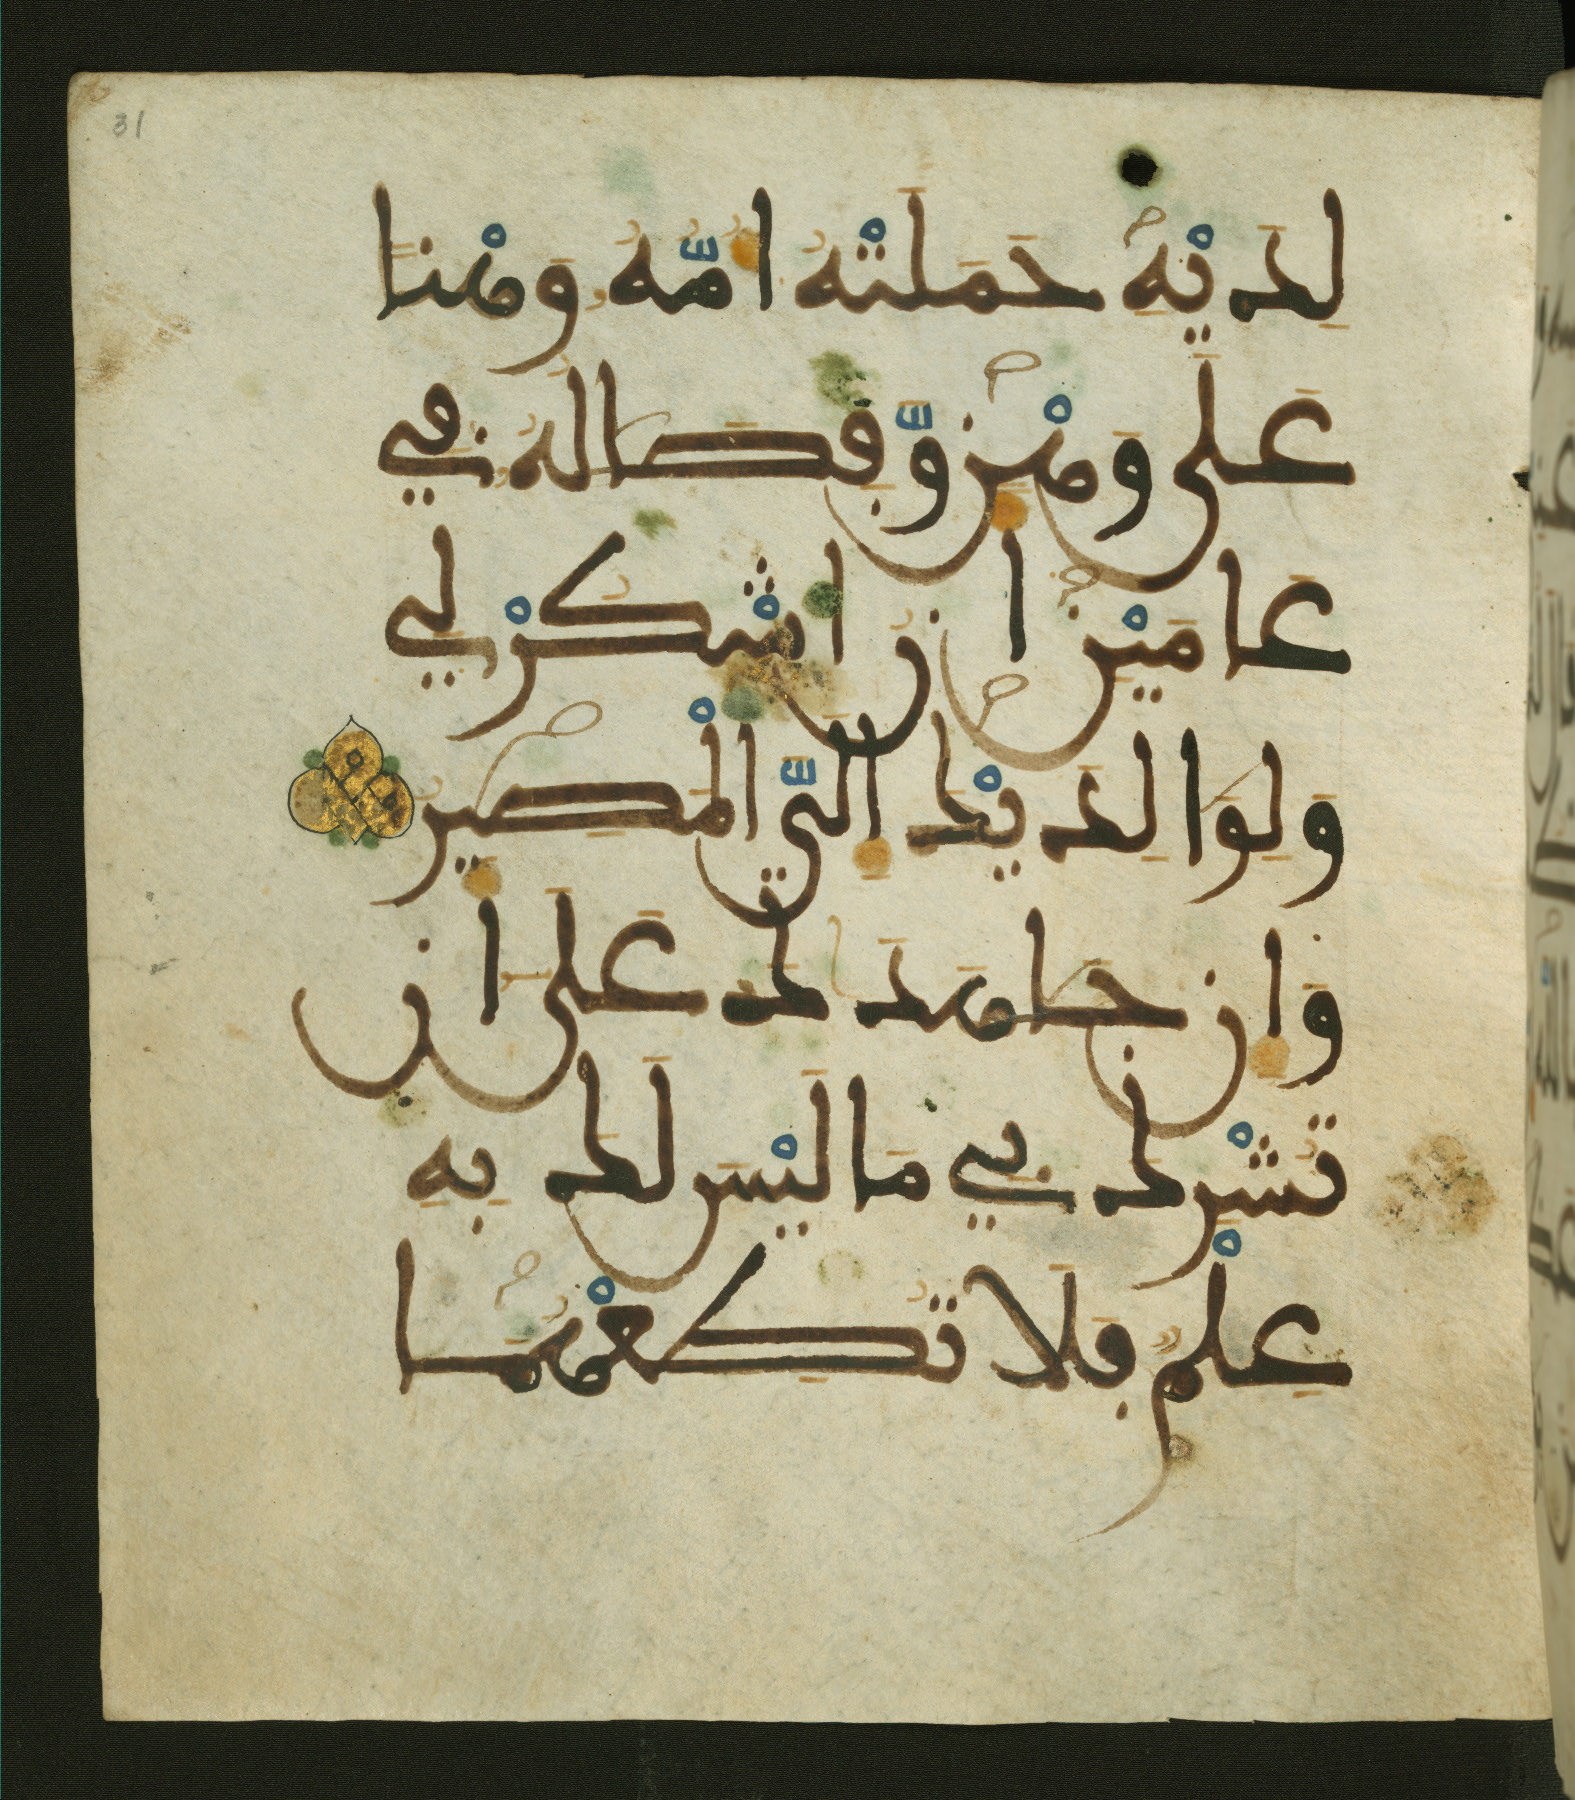 31
لِدَيْهِ حَمَلَتْهُ أُمُّهُ وَهْنًا
عَلَى وَهْنٍ وَّفِصَالُهُ فِي
عَامَيْنِ أَنُ اشْكُرْ لِي
وَلِوَالِدَيْكَ إِلَيَّ الْمَصِيرُ
وَإِن جَاهَدَاكَ عَلَى أَن
تُشْرِكَ بِي مَا لَيْسَ لَكَ بِهِ
عِلْمٌ فَلَا تُطِعْهُمَا